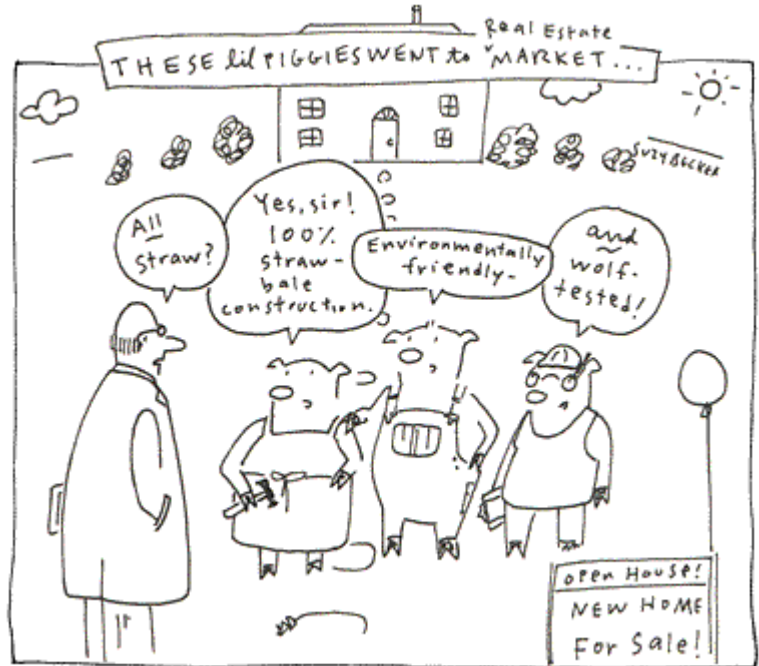 Real Estate
THESE lil PIGGIES WENT to ˅MARKET...
SUZY BECKER
All
straw?
Yes, sir!
100%
straw-
bale
construction.
Environmentally
friendly-
and
wolf-
tested!
open House!
NEW HOME
For Sale!